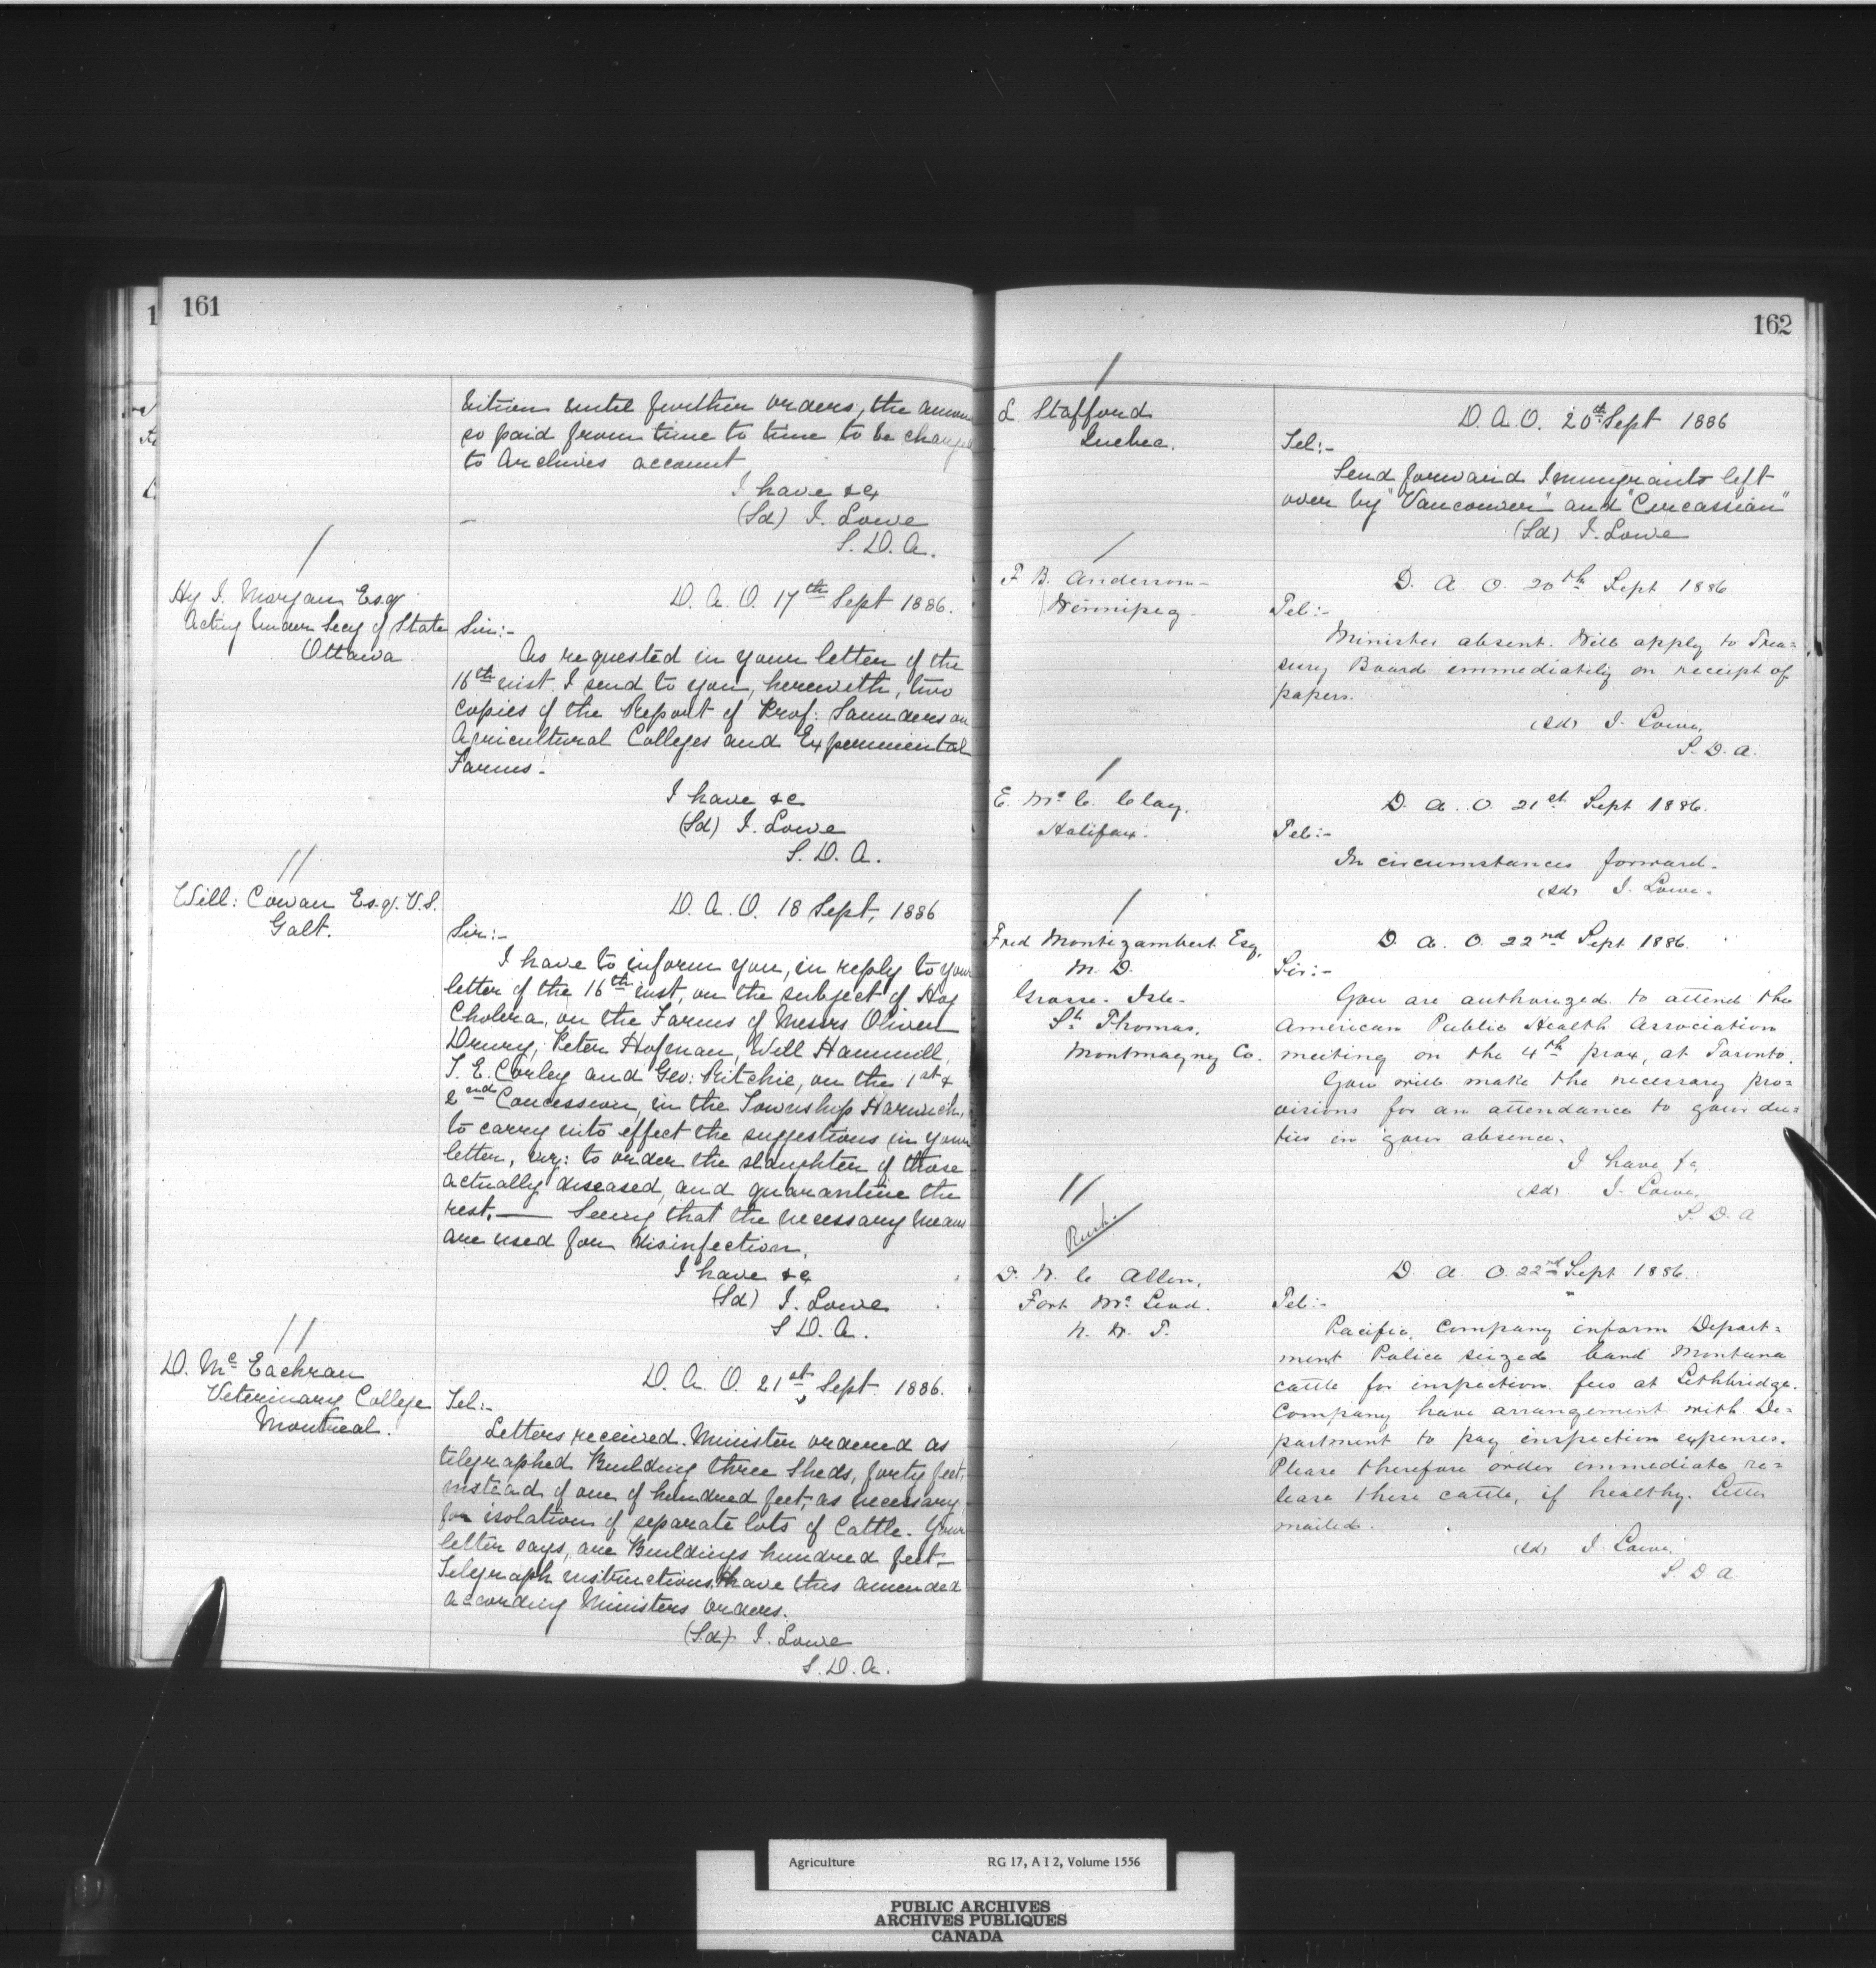 161
bition until further orders, the amount
so paid from time to time to be charged
to Archives account
I have &c
(Sd) J. Lowe
S. D. A.
Hy J. Morgan Esq
Acting Under Secy of State
Ottawa
D. A. O. 17th Sept 1886.
Sir:-
As requested in your letter of the
16th inst. I send to you, herewith, two
copies of the Report of Prof: Saunders on
Agricultural Colleges and Experimental
Farms.
I have &c
(Sd) J. Lowe
S. D. A.
Will: Cowan Esq. V.S.
Galt.
D. A. O. 18 Sept, 1886
Sir:-
I have to inform you, in reply to your
letter of the 16th inst, on the subject of Hog
Cholera, on the Farms of Messrs Oliver
Drury, Peter Hofman, Will Hammill,
T. E. Corley and Geo: Ritchie, on the 1st &
2nd Concession, in the Township Harwich,
to carry into effect the suggestions in your
letter, viz: to order the slaughter of those
actually diseased, and quarantine the
rest. — Seeing that the necessary means
are used for disinfection.
I have &c
(Sd) J. Lowe
S D. A.
D. Mc Eachran
Veterinary College
Montreal.
D. A. O. 21st Sept. 1886.
Tel:-
Letters received. Minister ordered as
telegraphed Building three Sheds, forty feet,
instead of one of hundred feet, as necessary
for isolation of separate lots of Cattle. Your
letter says, are Buildings hundred feet-
Telegraph instructions. Have this amended
according Ministers orders.
(Sd) J. Lowe
S. D. A.
162
L Stafford
Quebec.
D. A. O. 20th Sept 1886
Tel:-
Send forward Immigrants left
over by "Vancouver" and "Circassian"
(Sd) J. Lowe
F B. Anderson-
Winnipeg.
D. A. O. 20th Sept 1886
Tel:-
Minister absent. Will apply to Trea=
sury Board immediately on receipt of
papers.
(sd) J. Lowe,
S. D. A.
E. Mc C. Clay.
Halifax.
D. A. O. 21st Sept 1886.
Tel:-
In circumstances forward.
(sd) J. Lowe.
Fred Montizambert Esq.
M. D.
Grosse-Isle-
St. Thomas.
Montmagny Co.
D. A. O. 22nd Sept 1886.
Sir:-
You are authorized to attend the
American Public Health Association
meeting on the 4th prox, at Toronto.
You will make the necessary pro=
visions for an attendance to your du=
ties in your absence.
I have &c
(sd) J. Lowe,
S. D. A
Rush.
D. W. C Allen,
Fort Mc Leod.
N. W. T.
D. A. O. 22nd Sept 1886.
Tel:-
Pacific, Company inform Depart=
ment Police seized band Montana
cattle for inspection fees at Lethbridge.
Company have arrangement with De=
partment to pay inspection expenses.
Please therefore order immediate re=
lease these cattle, if healthy. Letter
mailed.
(sd) J. Lowe.
S. D. A
Agriculture RG 17, A I 2, Volume 1556
PUBLIC ARCHIVES
ARCHIVES PUBLIQUES
CANADA